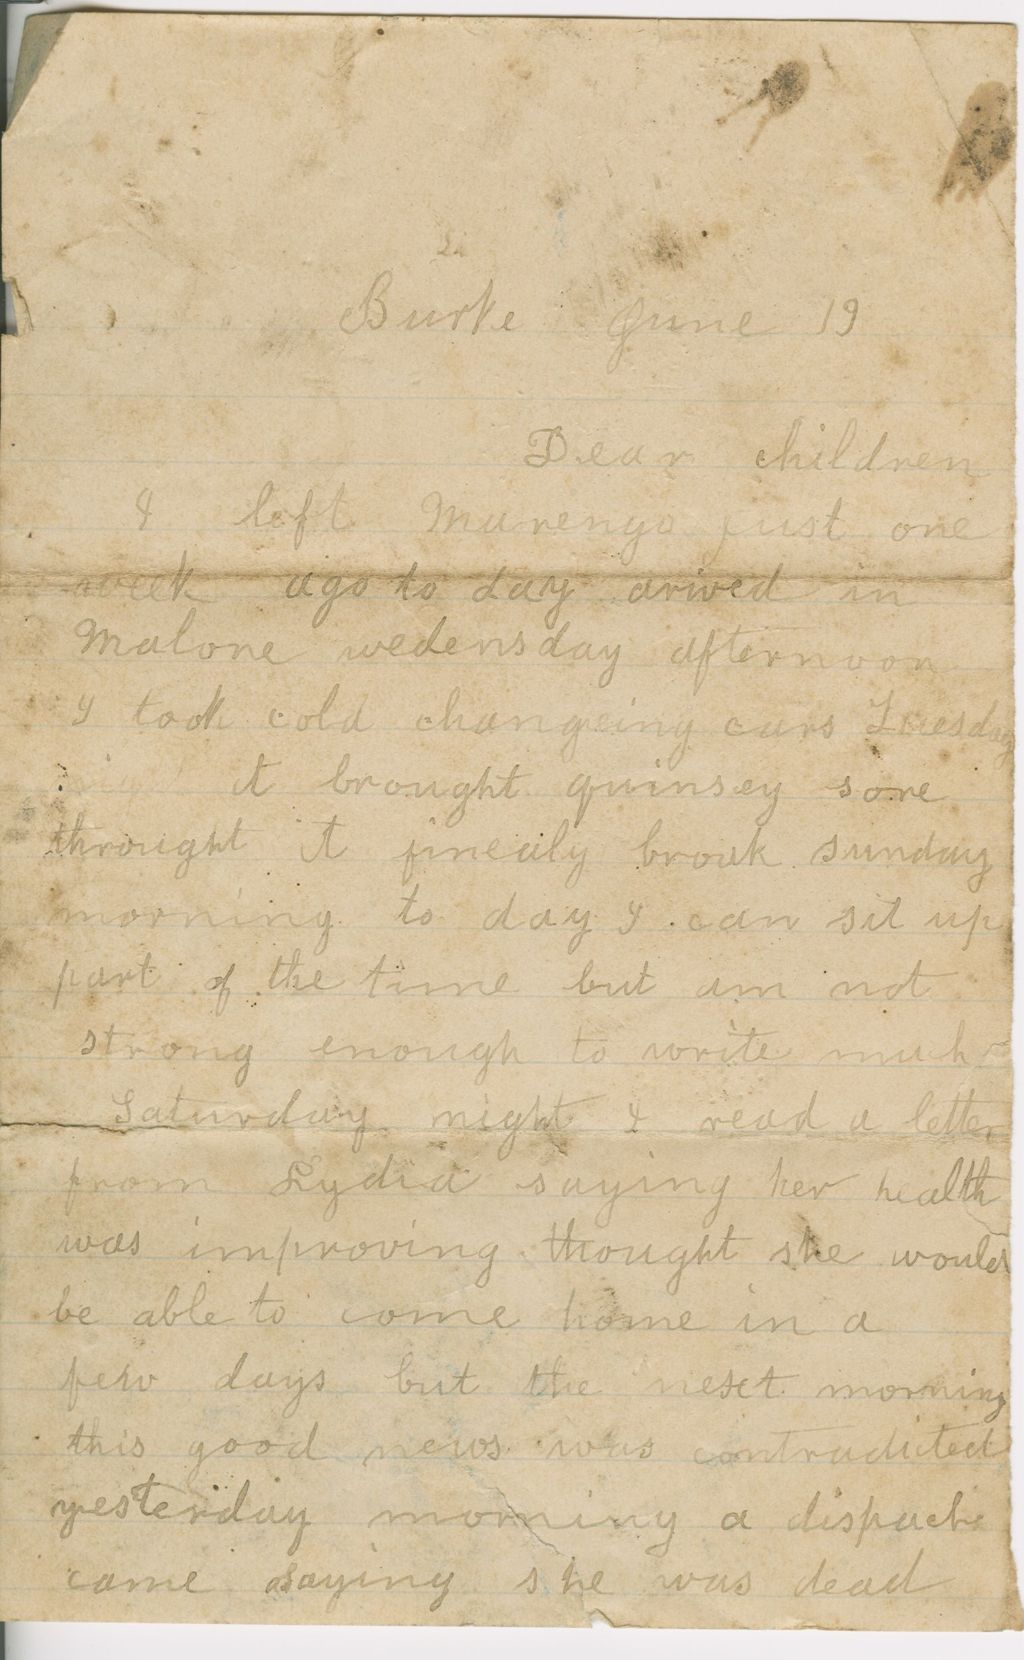 Burke June 19
Dear children
I left Marengo just one
week ago to day arived in
Malone wedensday afternoon
I took cold changeing cars Tuesday
night it brought quinsey sore
throught it finealy broak sunday
morning to day I can sit up
part of the time but am not
strong enough to write much
Saturday night I read a letter
from Lydia saying her health
was improving thought she would
be able to come home in a
few days but the next morning
this good news was contradicted
yesterday morning a dispach
came saying she was dead